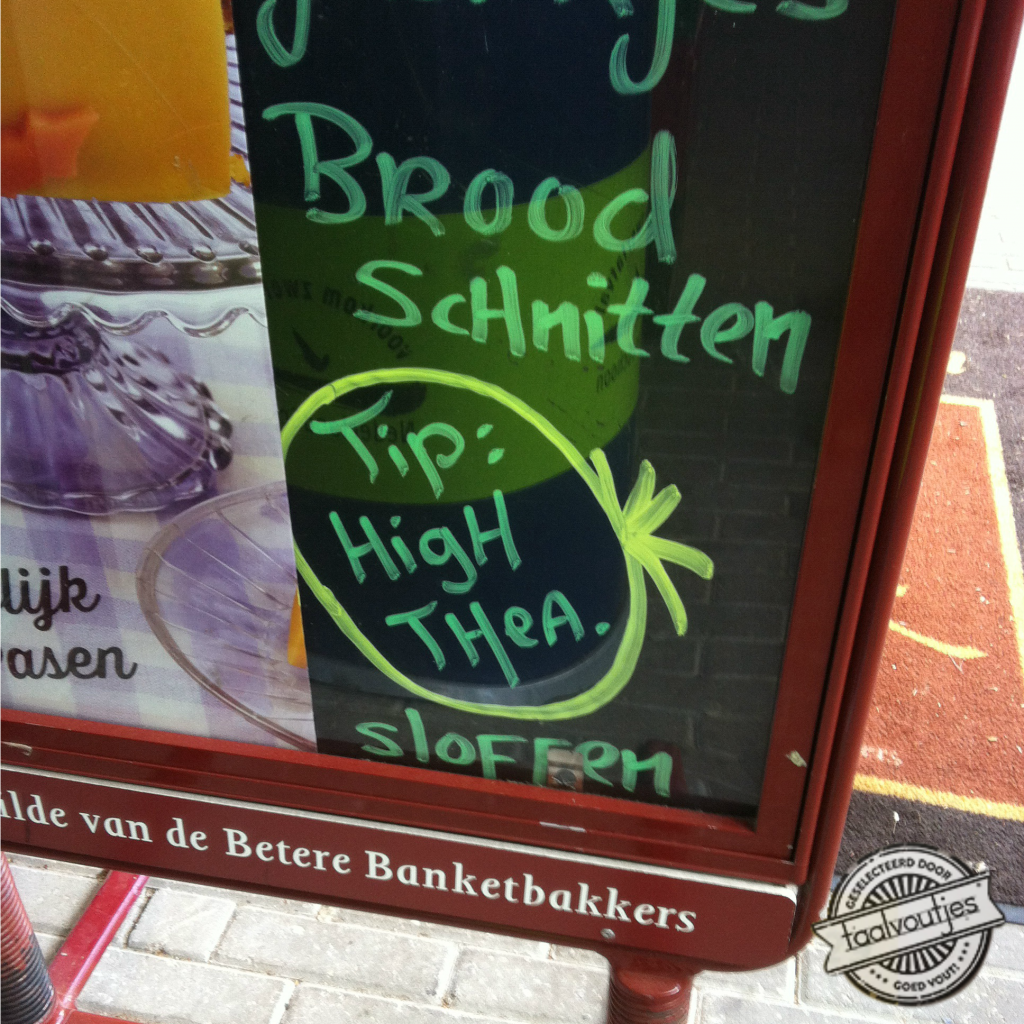 Brood
Schnitten
Tip:
High
THeA.
sloffen
lijk
asen
ilde van de Betere Banketbakkers
GESELECTEERD DOOR
taalvoutjes
GOED VOUT!